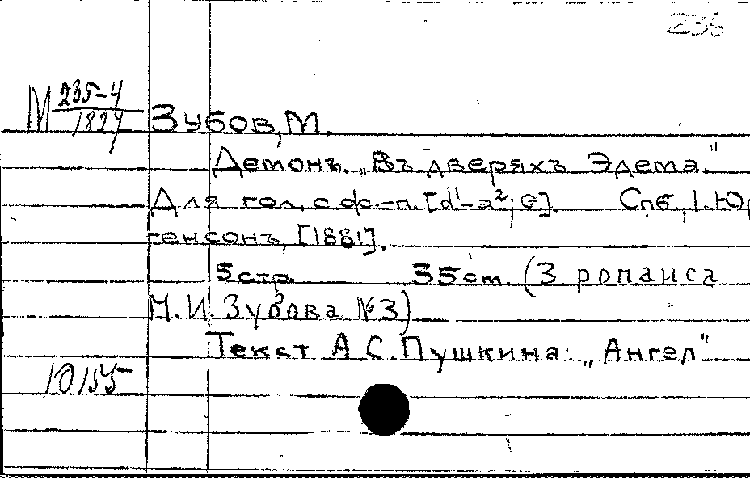 236
М 235-4
1827 Зубов, М.
Демонъ. „Въ дверяхъ Эдема."
Для гол. с ф.-п. [d¹-a²; G]. Спб., I. Юр
генсонъ, [1881].
5 стр. 35 см. (3 романса
М.И. Зубова №3)
Текст А.С. Пушкина: „Ангел"
10155